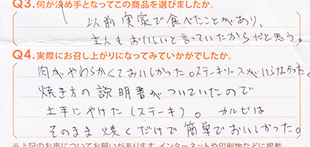 Q3.何が決め手となってこの商品を選びましたか。
以前実家で食べたことがあり、
主人もおいしいと言っていたからだと思う。
Q4.実際にお召し上がりになってみていかがでしたか。
肉がやわらかくておいしかった。ステーキソースがいらなかった。
焼き方の説明書がついていたので
上手にやけた(ステーキ)。カルビは
そのまま焼くだけで簡単でおいしかった。
※上記のお声についてお願いがあります。インターネットや印刷物などに掲載